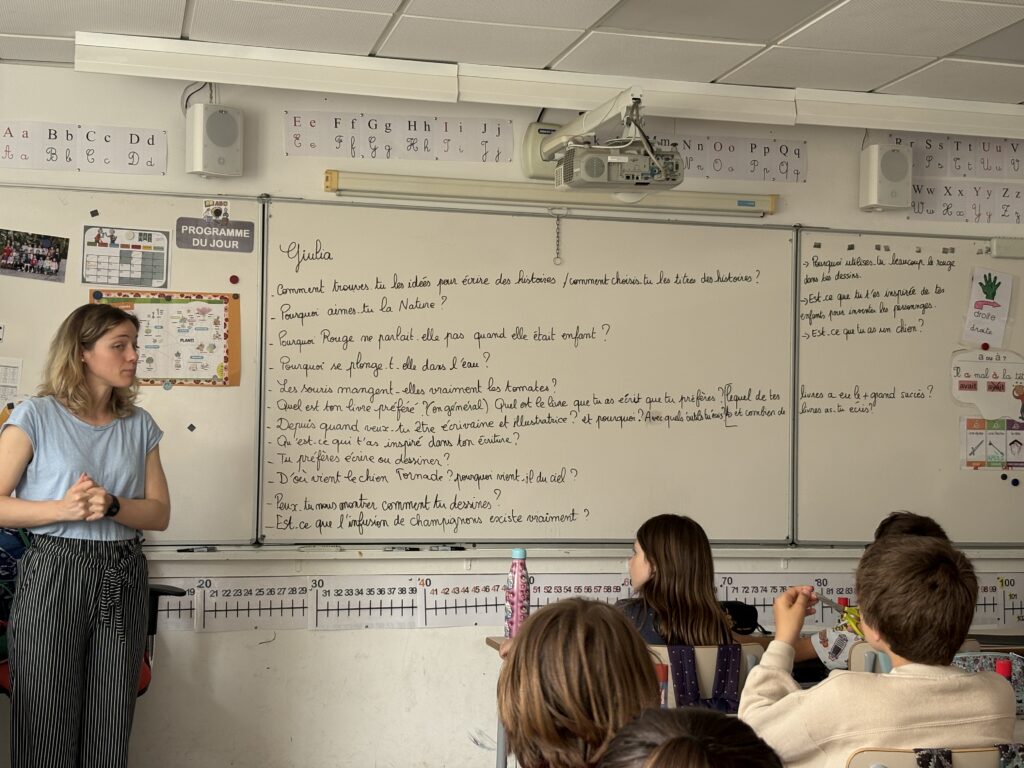 Aa Bb Cc Dd
Ee Ff Gg Hh Ii Jj
Nn Oo Pp Qq
Rr Ss Tt Uu V
Ww Xx Yy Zz
PROGRAMME
DU JOUR
PLANTS
Giulia
- Comment trouves-tu les idées pour écrire des histoires / comment choisis-tu les titres des histoires ?
- Pourquoi aimes-tu la Nature ?
- Pourquoi Rouge ne parlait-elle pas quand elle était enfant ?
- Pourquoi se plonge-t-elle dans l'eau ?
- Les souris mangent-elles vraiment les tomates ?
- Quel est ton livre préféré ? (en général) Quel est le livre que tu as écrit que tu préfères ? lequel de tes livres a eu le + grand succès ?
- Depuis quand veux-tu être écrivaine et illustratrice ? et pourquoi ? Avec quels outils tu écris et combien de livres as-tu écris ?
- Qu'est-ce qui t'as inspiré dans ton écriture ?
- Tu préfères écrire ou dessiner ?
- D'où vient le chien Tornade ? pourquoi vient-il du ciel ?
- Peux-tu nous montrer comment tu dessines ?
- Est-ce que l'infusion de champignons existe vraiment ?
→ Pourquoi utilises-tu beaucoup le rouge
dans tes dessins.
→ Est-ce que tu t'es inspirée de tes
enfants pour inventer les personnages.
→ Est-ce que tu as un chien ?
droite
droite
a ou à ?
Il a mal à la tête
avait
20 21 22 23 24 25 26 27 28 29 30 31 32 33 34 35 36 37 38 39 40 41 42 43 44 45 46 47 48 49 51 52 53 54 55 56 57 58 59 70 71 72 73 74 80 100 101